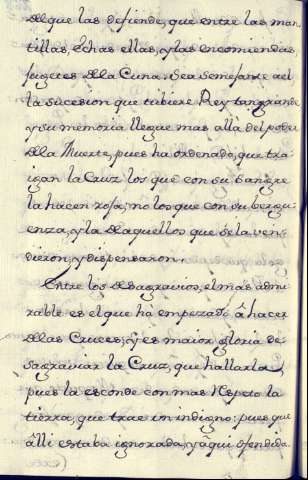 del que las defiende, que entre las man
tillas, èchas ellas, y las encomiendas
jugetes de la Cuna. Sea semejante aèl
la sucesion que tubiere Rey tan grande
y su memoria llegue mas allà del poder
dela Muerte, pues ha ordenado, que tra
igan la Cruz los que con su sangre
la hacen roja; no los que con su bergu
enza, y la de aquellos que se la ven
dieron, y dispensaron.
Entre los desagravios, el mas admi
rable es el que hà empezado â hacer
a las Cruces; y es maior gloria de
sagraviar la Cruz, que hallarla,
pues la esconde con mas respeto la
tierra, que trae un indigno: pues que
àlli estaba ignorada, y âqui ofendida.